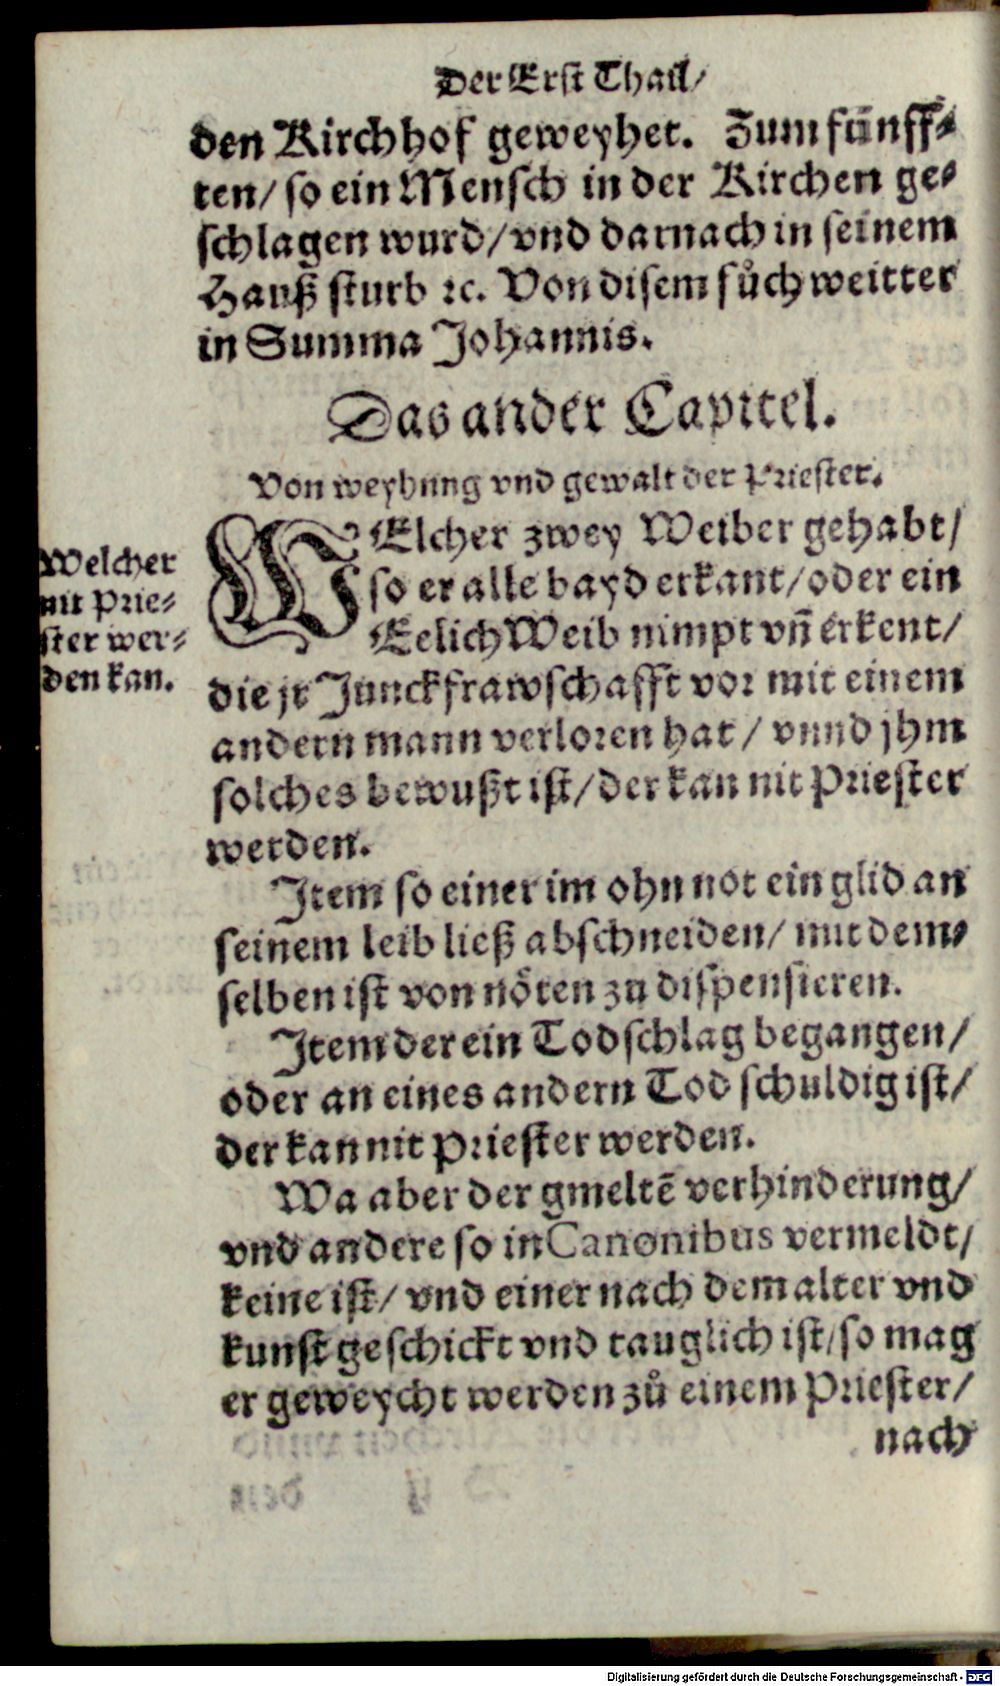 Der Erst Thail/
den Kirchhof geweyhet. Zum fünff⸗
ten/ so ein Mensch in der Kirchen ge⸗
schlagen wurd/ vnd darnach in seinem
Hauß sturb ꝛc. Von disem sůch weitter
in Summa Johannis.
Das ander Capitel.
Von weyhung vnd gewalt der Priester.
Welcher
nit Prie⸗
ster wer⸗
den kan.
WElcher zwey Weiber gehabt/
so er alle bayd erkant/ oder ein
Eelich Weib nimpt vn̄ erkent/
die jr Junckfrawschafft vor mit einem
andern mann verloren hat/ vnnd jhm
solches bewußt ist/ der kan nit Priester
werden.
Item so einer im ohn not ein glid an
seinem leib ließ abschneiden/ mit dem⸗
selben ist von nöten zu dispensieren.
Item der ein Todschlag begangen/
oder an eines andern Tod schuldig ist/
der kan nit Priester werden.
Wa aber der gmeltē verhinderung/
vnd andere so in Canonibus vermeldt/
keine ist/ vnd einer nach dem alter vnd
kunst geschickt vnd tauglich ist/ so mag
er geweycht werden zů einem Priester/
nach
Digitalisierung gefördert durch die Deutsche Forschungsgemeinschaft - DFG